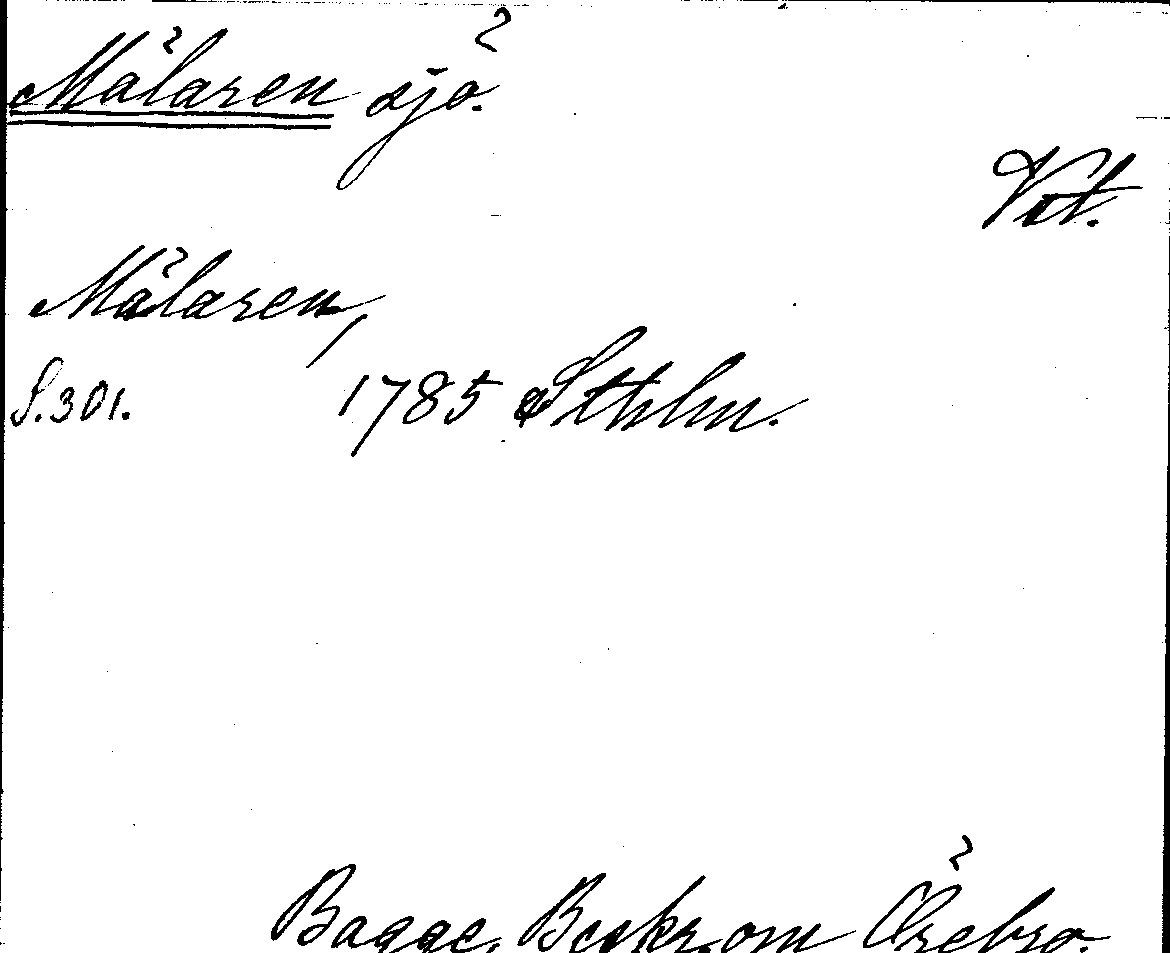 Mälaren sjö.
Vat.
Mälaren,
S. 301. 1785 Sthlm.
Bagge, Beskr. om Örebro.